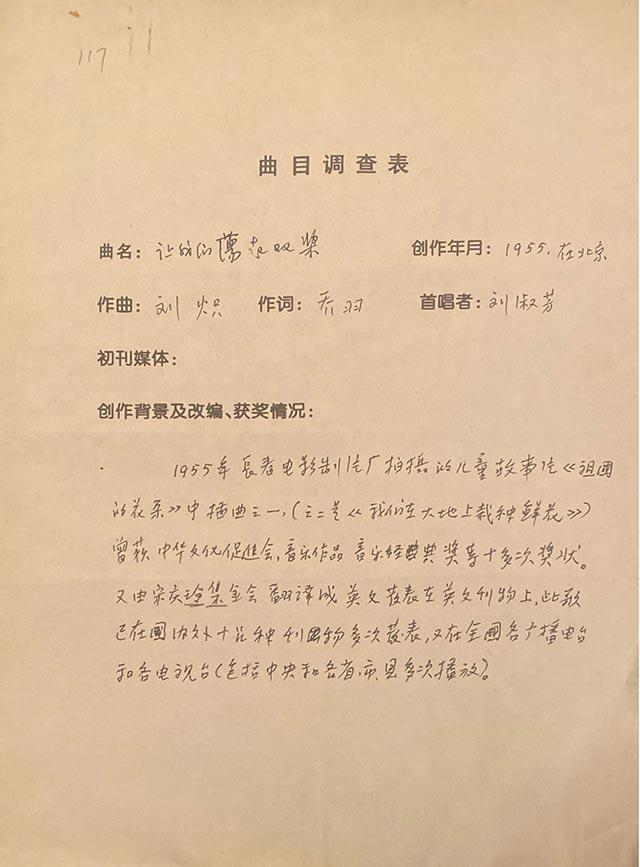 117
曲目调查表
曲名：让我们荡起双桨 创作年月：1955.在北京
作曲：刘炽 作词：乔羽 首唱者：刘淑芳
初刊媒体：
创作背景及改编、获奖情况：
1955年長春电影制片厂拍摄的儿童故事片《祖國
的花朵》中插曲之一，（之二是《我们在大地上栽种鲜花》）
曾获中华文化促進会，音乐作品 音乐经典典奖等十多次奖状。
又由宋庆玲集金会翻译成英文发表在英文刊物上，此歌
已在國内外十几种刊物多次发表，又在全國各广播电台
和各电视台（包括中央和各省、市、县多次播放）。